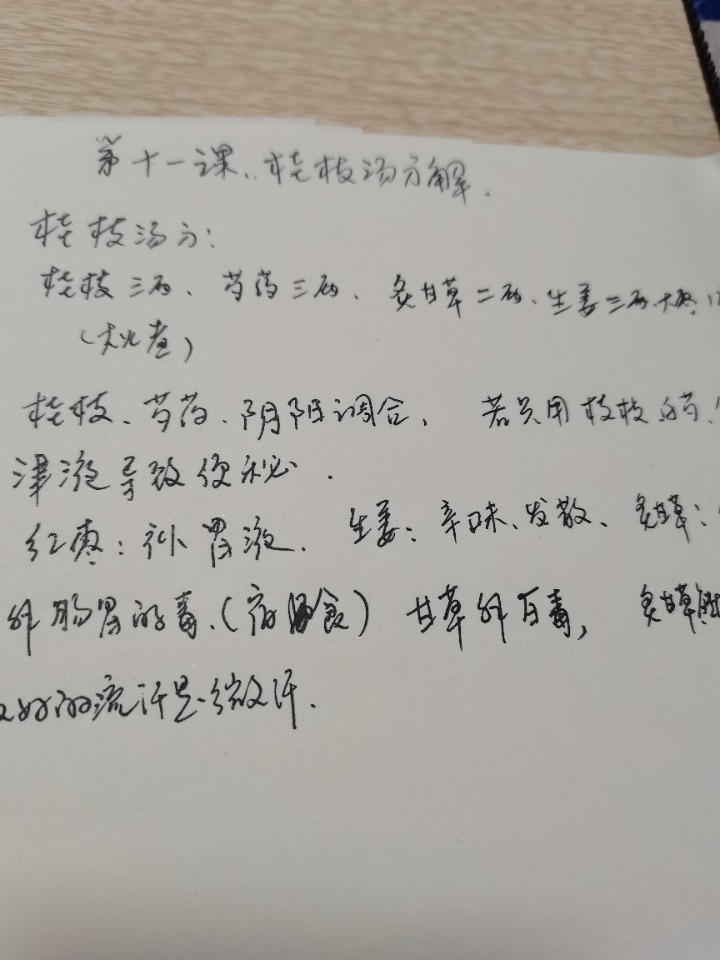 第十一课、桂枝汤方解.
桂枝汤方:
桂枝三两、芍药三两、炙甘草二两、生姜三两、大枣12
(水煮)
桂枝、芍药、阴阳调合, 若只用枝枝
津液导致便秘.
红枣:补胃液. 生姜:辛味、发散、炙甘草:
解肠胃的毒、(宿食) 甘草解百毒, 炙甘草
好的流汗是微汗.